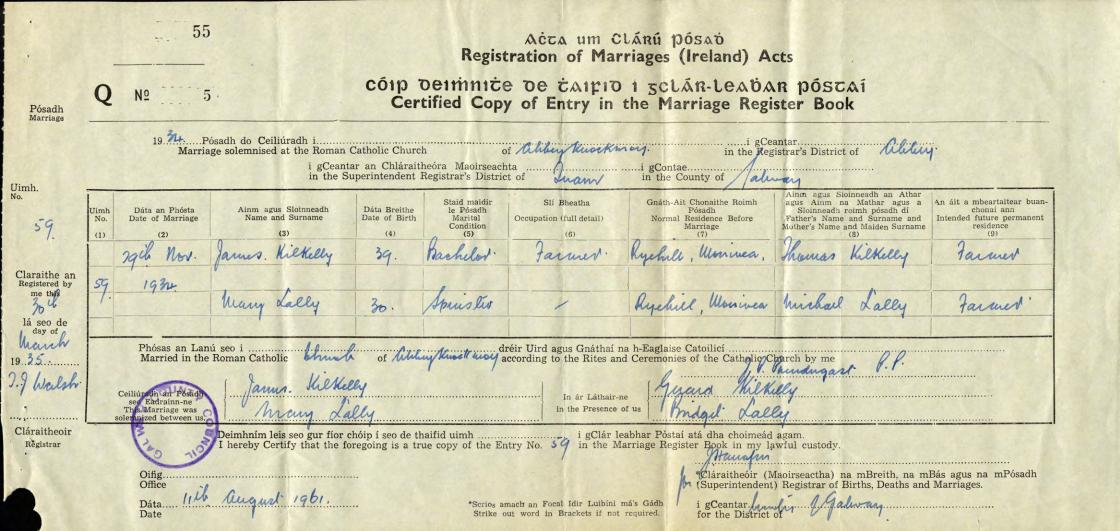 55
Acta um Clárú Pósad
Registration of Marriages (Ireland) Acts
Q Nº 5
Cóip Deimnite de Taifid i gClár-Leabar Póstaí
Certified Copy of Entry in the Marriage Register Book
Pósadh
Marriage
1934 Pósadh do Ceiliúradh i i gCeantar
Marriage solemnised at the Roman Catholic Church of Abbeyknockmoy in the Registrar's District of Abbey
i gCeantar an Chláraitheóra Maoirseachta i gContae
in the Superintendent Registrar's District of Tuam in the County of Galway
Uimh.
No.
59.
Uimh No. (1)
Dáta an Phósta Date of Marriage (2)
Ainm agus Sloinneadh Name and Surname (3)
Dáta Breithe Date of Birth (4)
Staid maidir le Pósadh Marital Condition (5)
Slí Bheatha Occupation (full detail) (6)
Gnáth-Áit Chonaithe Roimh Pósadh Normal Residence Before Marriage (7)
Ainm agus Sloinneadh an Athar agus Ainm na Mathar agus a Sloinneadh roimh pósadh di Father's Name and Surname and Mother's Name and Maiden Surname (8)
An áit a mbeartaítear buanchonaí ann Intended future permanent residence (9)
29th Nov. James Kilkelly 39. Bachelor Farmer Ryehill, Monivea, Thomas Kilkelly Farmer
59 1934
Mary Lally 30. Spinster – Ryehill, Monivea Michael Lally Farmer
Claraithe an
Registered by
me this
30th
lá seo de
day of
March
1935.
Cláraitheoir
Registrar
Phósas an Lánú seo i dréir Uird agus Gnáthaí na h-Eaglaise Catoilicí
Married in the Roman Catholic Church of Abbeyknockmoy according to the Rites and Ceremonies of the Catholic Church by me
P.P.
Ceiliúradh an Pósadh seo Eadrainn-ne
This Marriage was solemnized between us
James Kilkelly
Mary Lally
In ár Láthair-ne
in the Presence of us
Gerard Kilkelly
Bridget Lally
GALWAY COUNTY COUNCIL
Deimhním leis seo gur fíor chóip í seo de thaifid uimh i gClár leabhar Póstaí atá dha choimeád agam.
I hereby Certify that the foregoing is a true copy of the Entry No. 59 in the Marriage Register Book in my lawful custody.
for (Cláraitheóir (Maoirseachta) na mBreith, na mBás agus na mPósadh
(Superintendent) Registrar of Births, Deaths and Marriages.
Oifig
Office
Dáta 11th August 1961.
Date
*Scrios amach an Focal Idir Luibíní má's Gádh
Strike out word in Brackets if not required.
i gCeantar
for the District of Galway